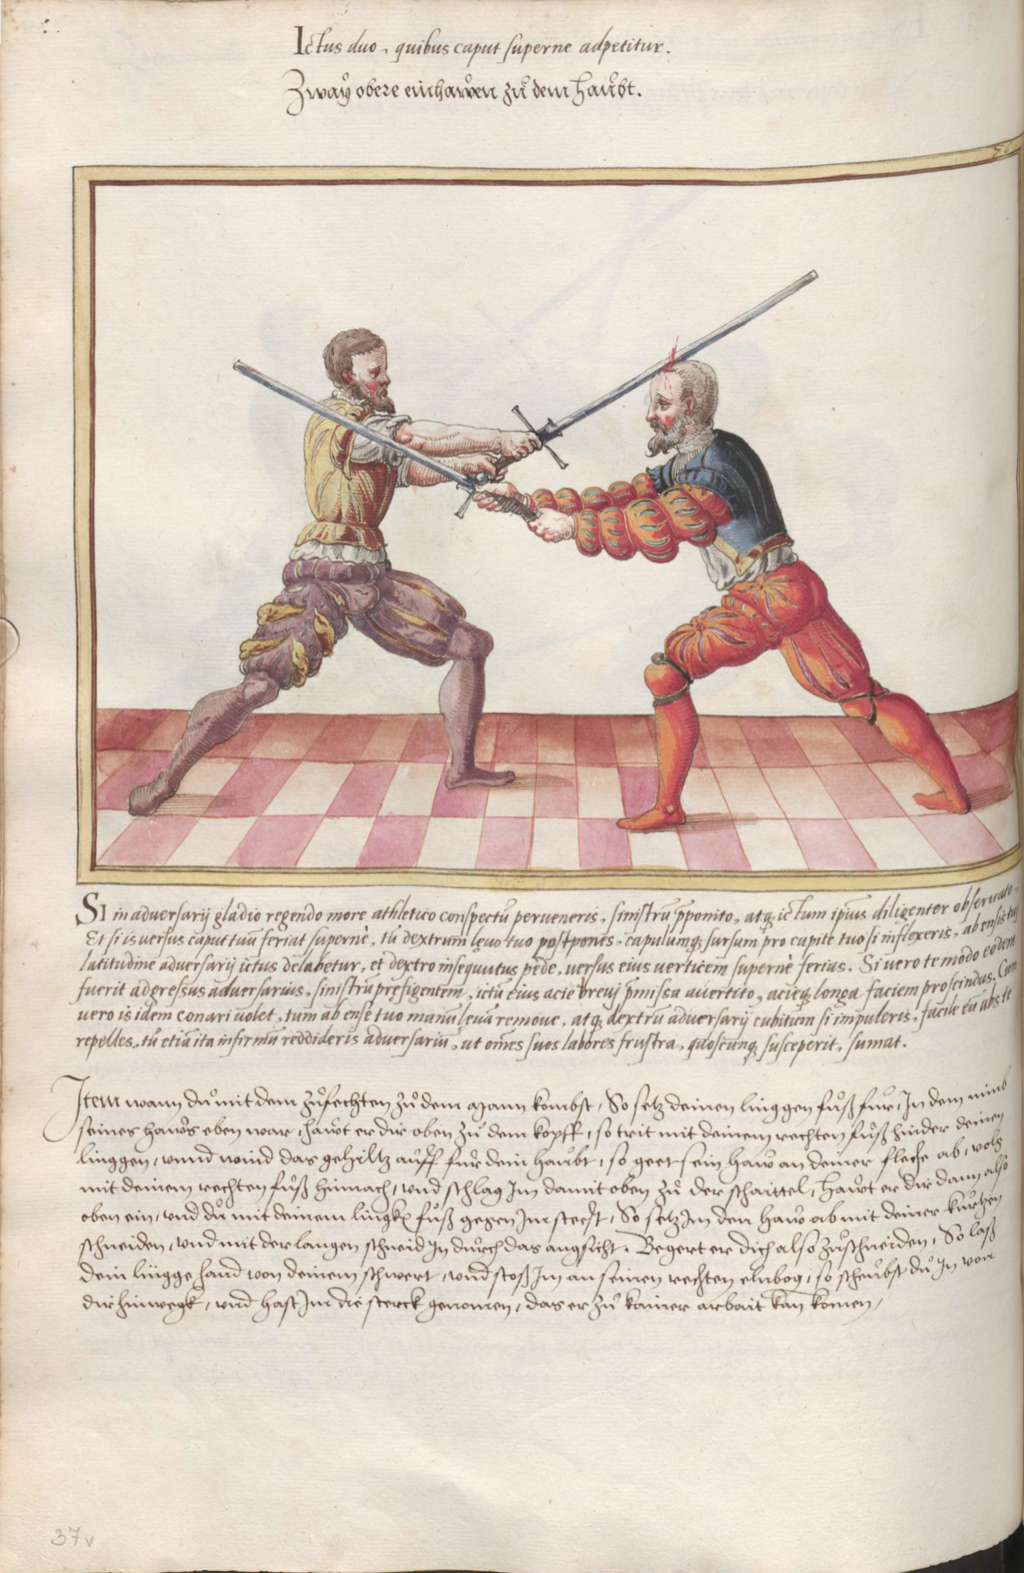 Ictus duo, quibus caput superne adpetitur.
Zwaÿ obere einhawen zů dem haubt.
SI in adversarij gladio regendo more athletico conspectũ perueneris, sinistrũ pponito, atq; ictum ipiũs diligenter observato.
Et si is versus caput tuũ feriat supernè, tũ dextrum levo tuo postpones, capulumq; sursum pro capite tuo si inflexeris, ab ensis tui
latitudine adversarij ictus delabetur, et dextro insequutus pede, versus eius verticem supernè ferias. Si vero te modo eodem
fuerit adgressus adversarius, sinistrũ prefigentem, ictũ eius acie brevi pmissa avertito, acieq; longa faciem proscindas. Cum
vero is idem conari volet, tum ab ense tuo manũ levã remove, atq; dextrũ adversarij cubitum si impuleris, facile eũ abs te
repelles, tũ etiã ita infirmũ reddideris adversariũ, ut omẽs suos labores frustra, quoscunq; susceperit, sumat.
Item wann du mit dem zůfechten zů dem Mann kombst, So setz deinen linggen fůß fur, In dem nimb
seines haws eben war, hawt er dir oben zů dem kopff, so trit mit deinem rechten fůß hinder deinen
linggen, vnnd wind das gehiltz auff fur dein haubt, so geet sein haw an deiner fleche ab, volg
mit deinem rechten fůß hinnach, vnd schlag Im damit oben zů der schaittel, Hawt er dir dann also
oben ein, vnd du mit deinem lingkẽ fůß gegen Im steest, So setz Im den haw ab mit deiner kurtzen
schneiden, vnd mit der langen schneid In durch das angsicht. Begert er dich also zůschneiden, So laß
dein lingge hand von deinem schwert, vnd stoß Im an seinen rechten elnbog, so scheubst du In von
dir hinwegk, vnd hast Im die sterck genomen, das er zů kainer arbait kan komen,
37v